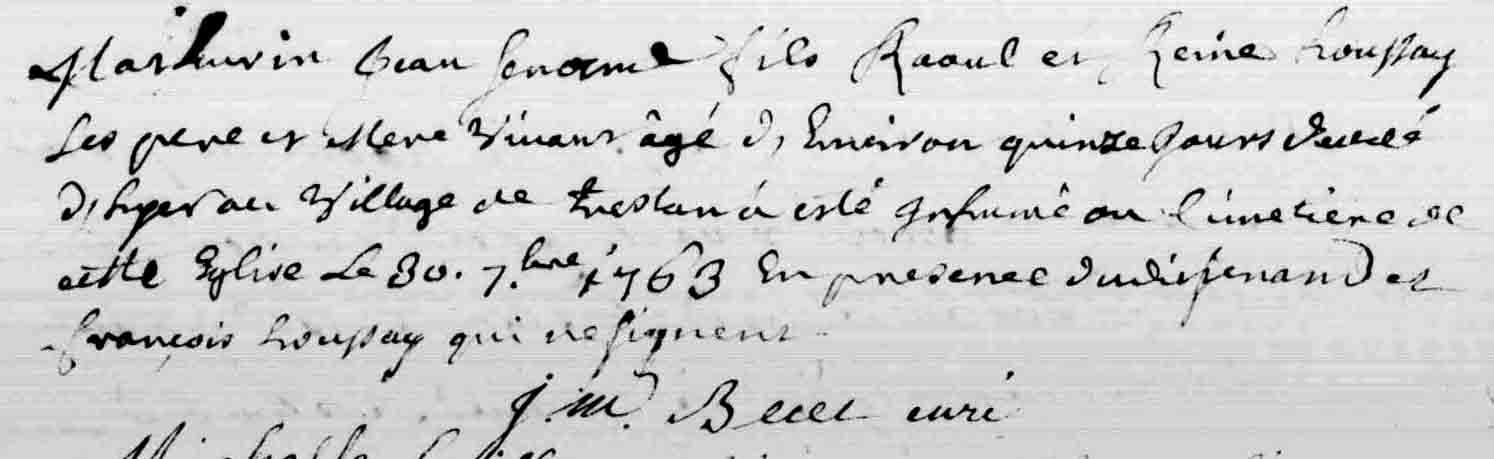 Mathurin Jean fils Raoul et Reine houssay
Les pere et Mere Vivant âgé d'Environ quinze jours decedé
d'hyer au Village de trestan a esté Inhumé au Cimetiere de
cette Eglise Le 30. 7.bre 1763 En presence dudit et
françois houssay qui ne signent
j. m. Becel curé